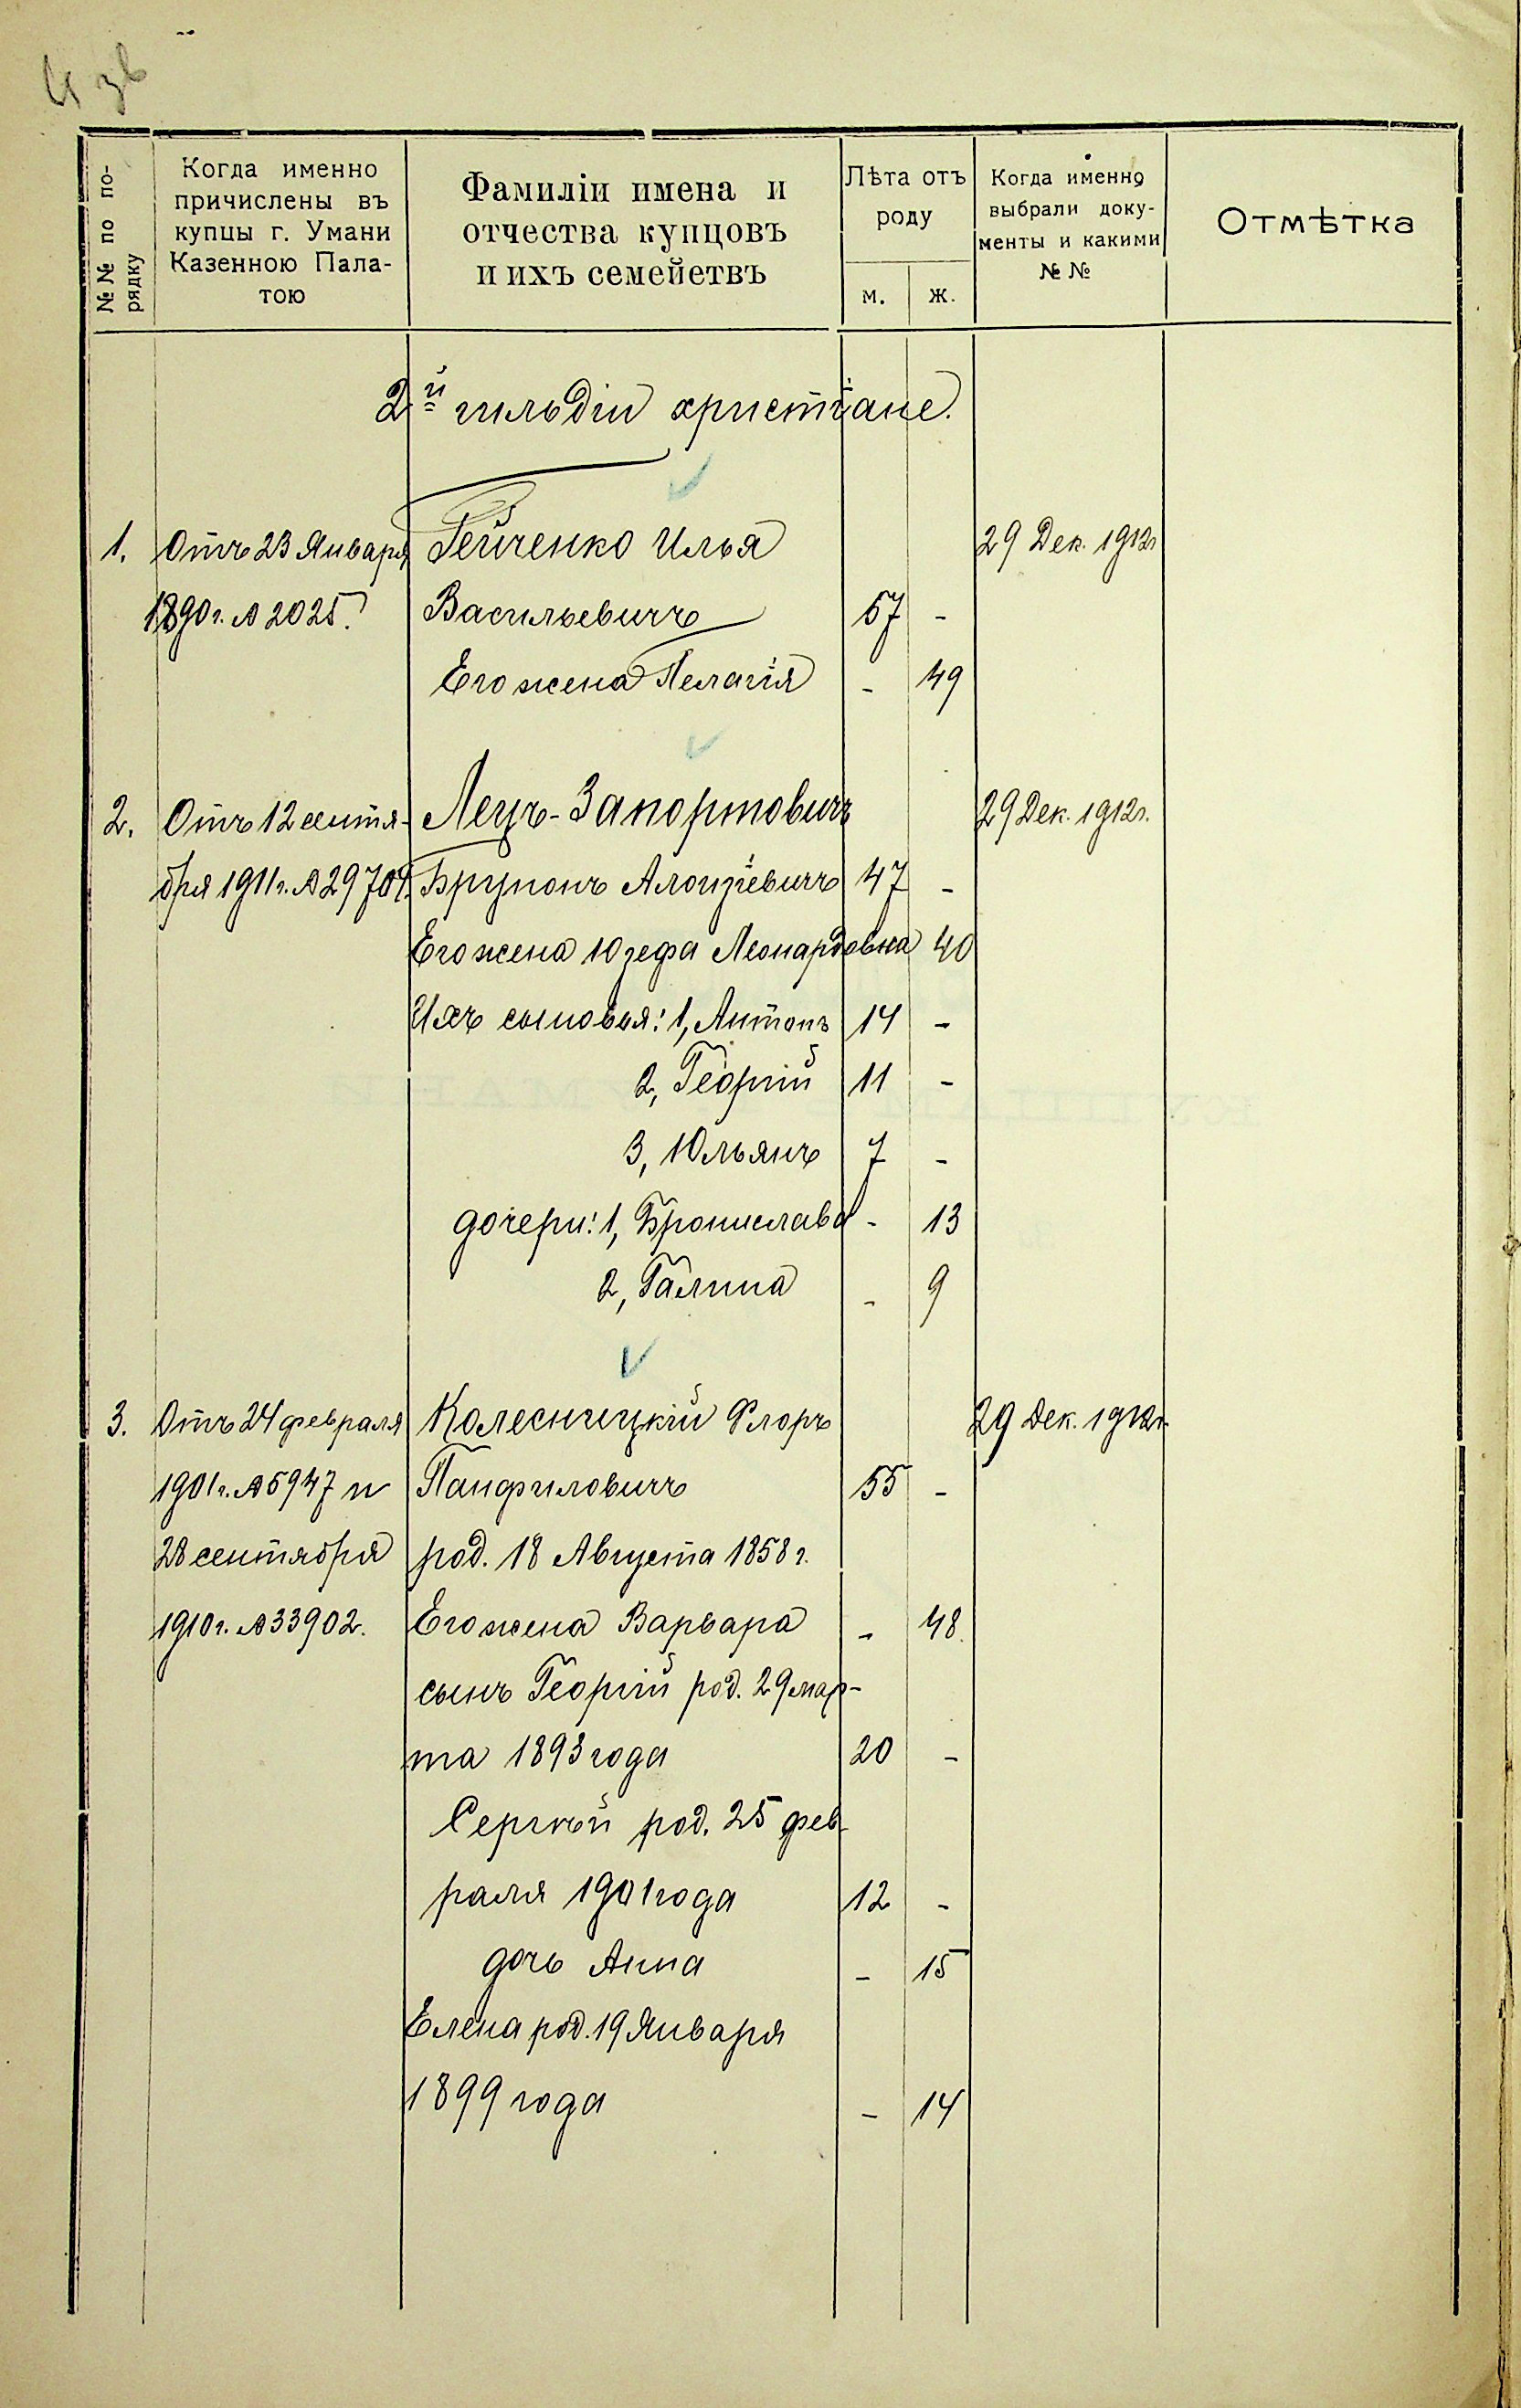 №№ по по-
рядку
Когда именно
причислены въ
купцы г. Умани
Казенною Пала-
тою
Фамиліи имена и
отчества купцовъ
и ихъ семействъ
Лѣта отъ
роду
м. ж.
Когда именно
выбрали доку-
менты и какими
№ №
Отмѣтка
2й гильдіи христіане.
1. Отъ 23 Января Гейченко Илья 29 Дек. 1912г
1890 г. № 2025. Васильевичъ 57 -
Его жена Пелагія - 49
2. Отъ 12 сентя- Лецъ-Запортовичъ 29 Дек. 1912г.
бря 1911 г. № 29709. Брунонъ Алоизіевичъ 47 -
Его жена Юзефа Леонардовна 40
Ихъ сыновья: 1, Антонъ 14 -
2, Георгій 11 -
3, Юльянъ 7 -
дочери: 1, Бронислава - 13
2, Галина - 9
3. Отъ 24 февраля Колесницкій Флоръ 29 Дек. 1912г.
1901 г. № 5947 и Панфиловичъ 55 -
28 сентября род. 18 Августа 1858 г.
1910 г. № 33902. Его жена Варвара - 48
сынъ Георгій род. 29 мар-
та 1893 года 20 -
Сергѣй род. 25 фев-
раля 1901 года 12 -
дочь Анна - 15
Елена род. 19 Января
1899 года - 14